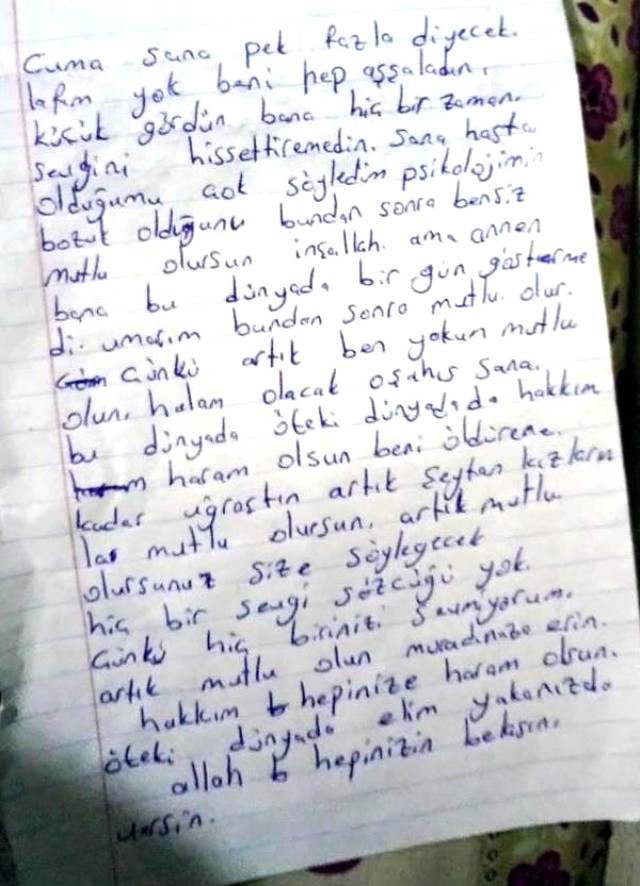 Cuma sana pek fazla diyecek.
lafım yok beni hep aşşaladın,
küçük gördün bana hiç bir zaman.
sevgini hissettiremedin. Sana hasta
olduğumu çok söyledim psikolojimin
bozuk olduğunu bundan sonra bensiz
mutlu olursun inşallah. ama annen
bana bu dünyada bir gün gösterme
di. umarım bundan sonra mutlu olur.
Çünkü artık ben yokum mutlu
olun. halam olacak oşahıs sana.
bu dünyada öteki dünyadada hakkım
haram olsun beni öldürene.
kadar uğraştın artık şeytan kızların
la mutlu olursun. artık mutlu
olursunuz size söyleyecek
hiç bir sevgi sözcüğü yok.
Çünkü hiç birinizi sevmiyorum.
artık mutlu olun muradınıza erin.
hakkım hepinize haram olsun.
öteki dünyada elim yakanızda
allah hepinizin belasın.
versin.